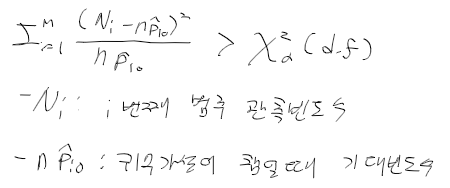 Σᵐᵢ₌₁ (Nᵢ - np̂ᵢ₀)² / np̂ᵢ₀ > χ²α(d.f)
- Nᵢ : i번째 범주 관측빈도수
- np̂ᵢ₀ : 귀무가설이 참일때 기대빈도수